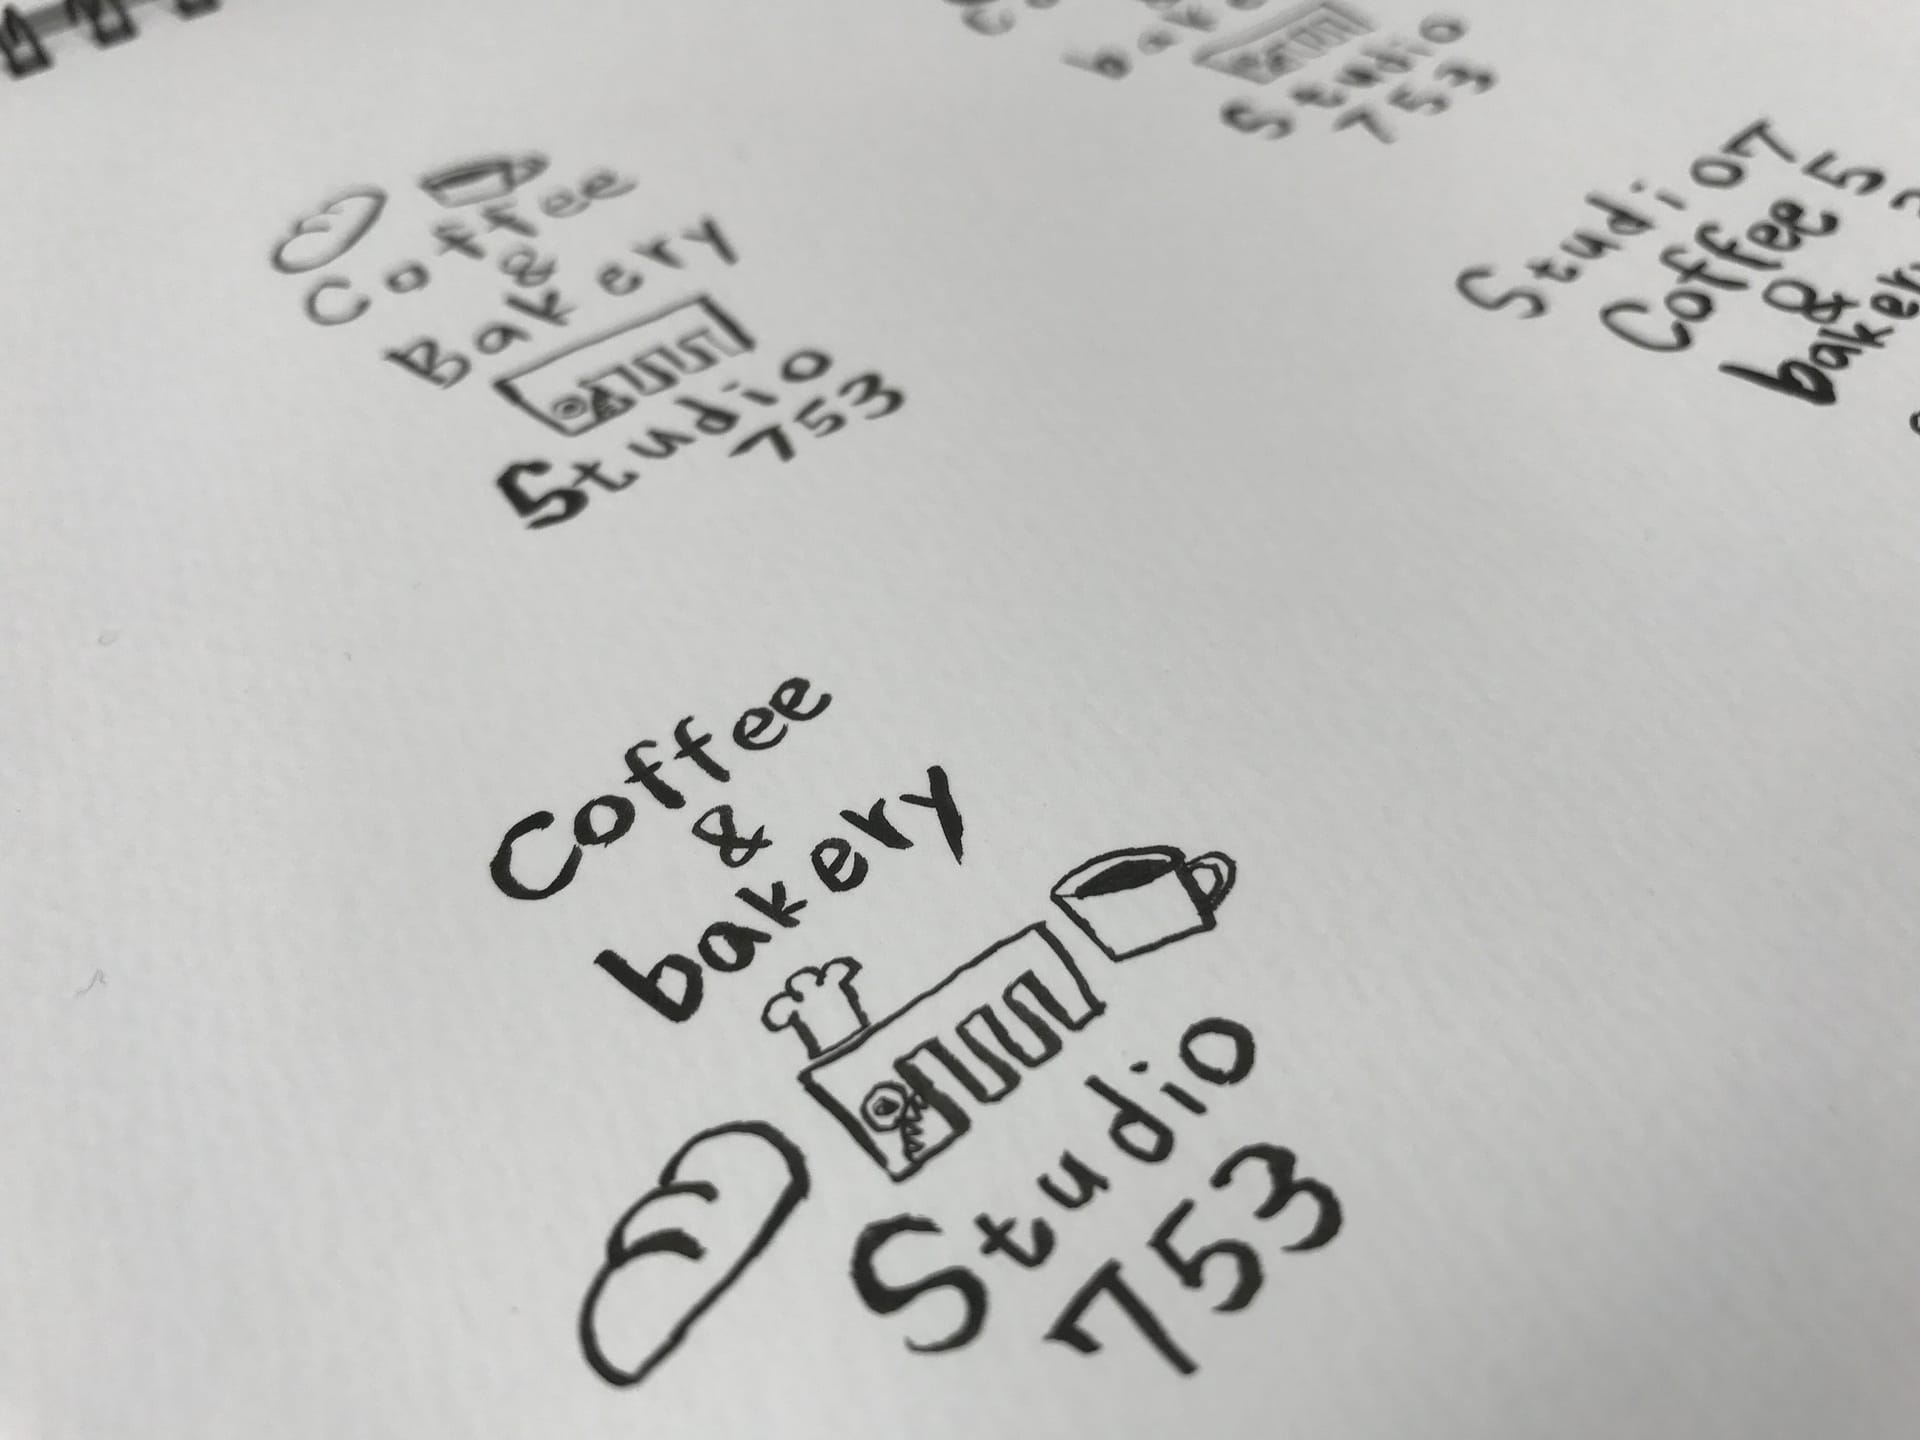 bak
Studio
753
Coffee
&
Bakery
Studio
753
Studio 7
Coffee 5
&
baker
Coffee
&
bakery
Studio
753